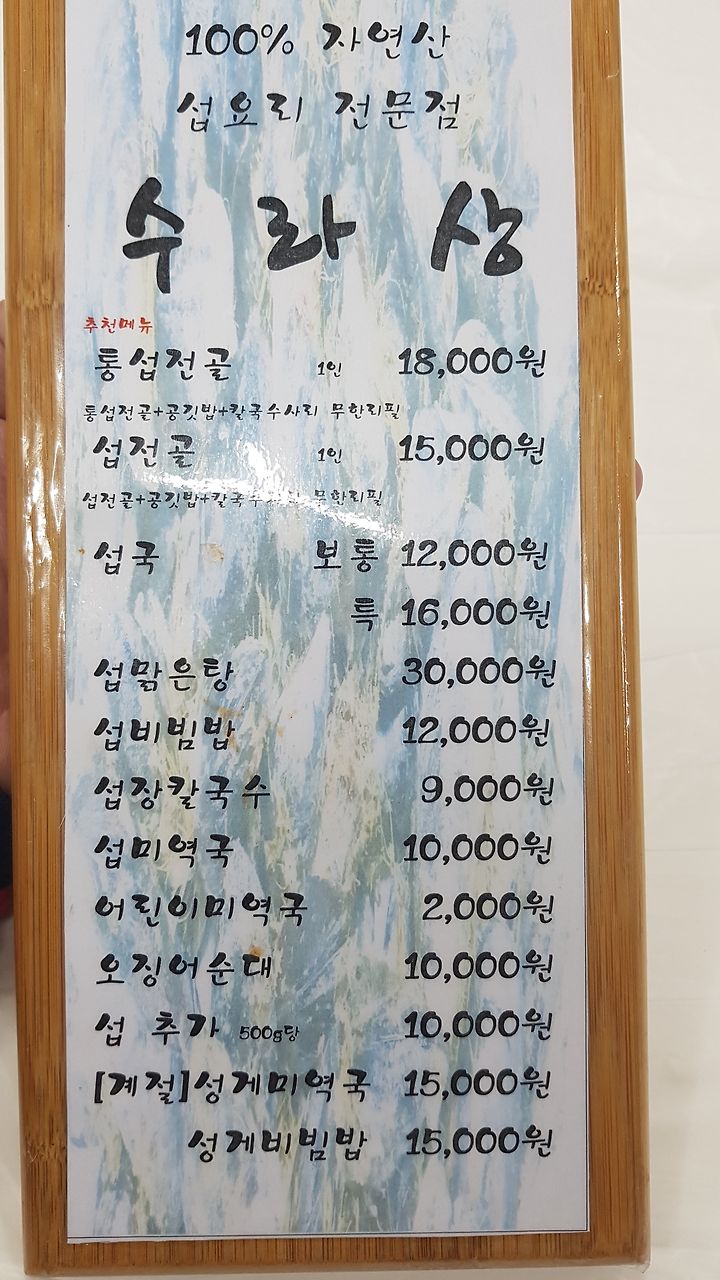 100% 자연산
섭요리 전문점
수라상
추천메뉴
통섭전골 1인 18,000원
통섭전골+공깃밥+칼국수사리 무한리필
섭전골 1인 15,000원
섭전골+공깃밥+칼국수사리 무한리필
섭국 보통 12,000원
특 16,000원
섭맑은탕 30,000원
섭비빔밥 12,000원
섭장칼국수 9,000원
섭미역국 10,000원
어린이미역국 2,000원
오징어순대 10,000원
섭 추가 500g당 10,000원
[계절]성게미역국 15,000원
성게비빔밥 15,000원